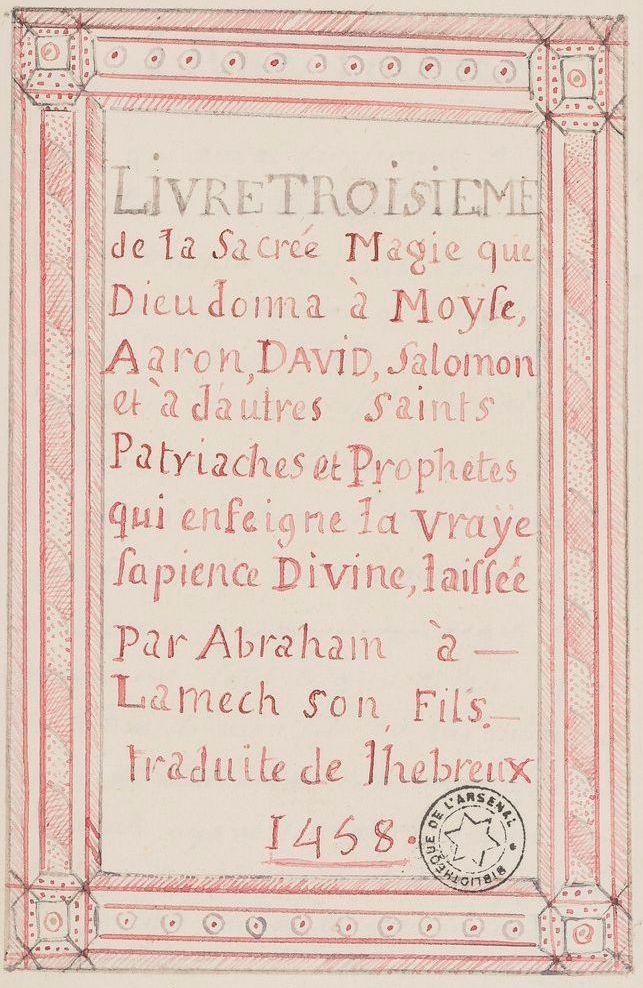 LIVRE TROISIEME
de la Sacrée Magie que
Dieu donna à Moyſe,
Aaron, DAVID, Salomon
et à d'autres saints
Patriaches et Prophetes
qui enſeigne la vraÿe
ſapience Divine, laiſſée
par Abraham à —
Lamech son Fils. —
traduite de lhebreux
1458.
BIBLIOTHÈQUE DE L'ARSENAL